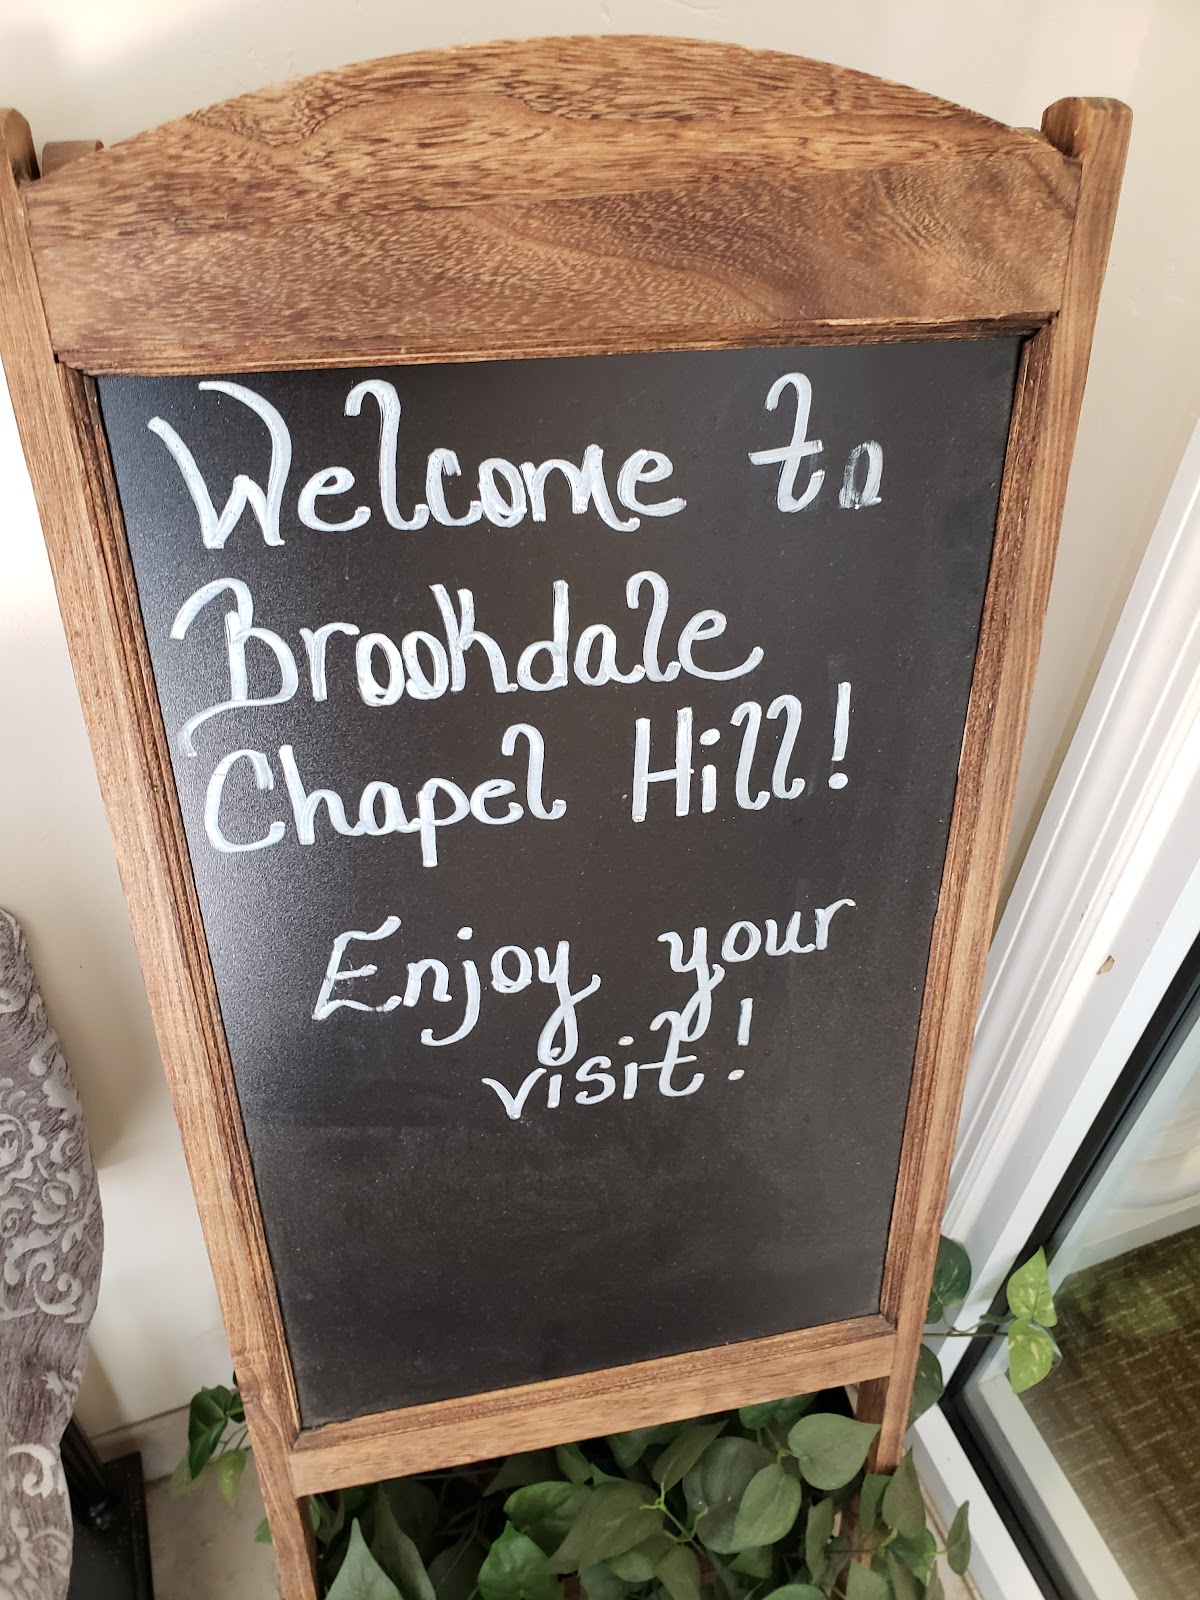 Welcome to
Brookdale
Chapel Hill!
Enjoy your
visit!